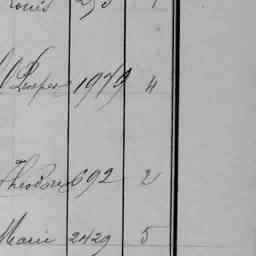 Louis 293 1
Prosper 1979 4
Théodore 692 2
Marie 2429 5